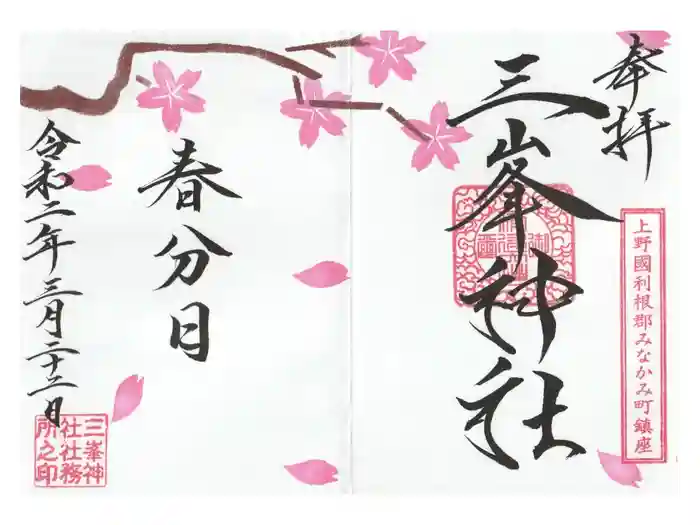 奉拝
三峯神社
上野國利根郡みなかみ町鎮座
春分日
令和二年三月二十二日
三峯神
社社務
所之印